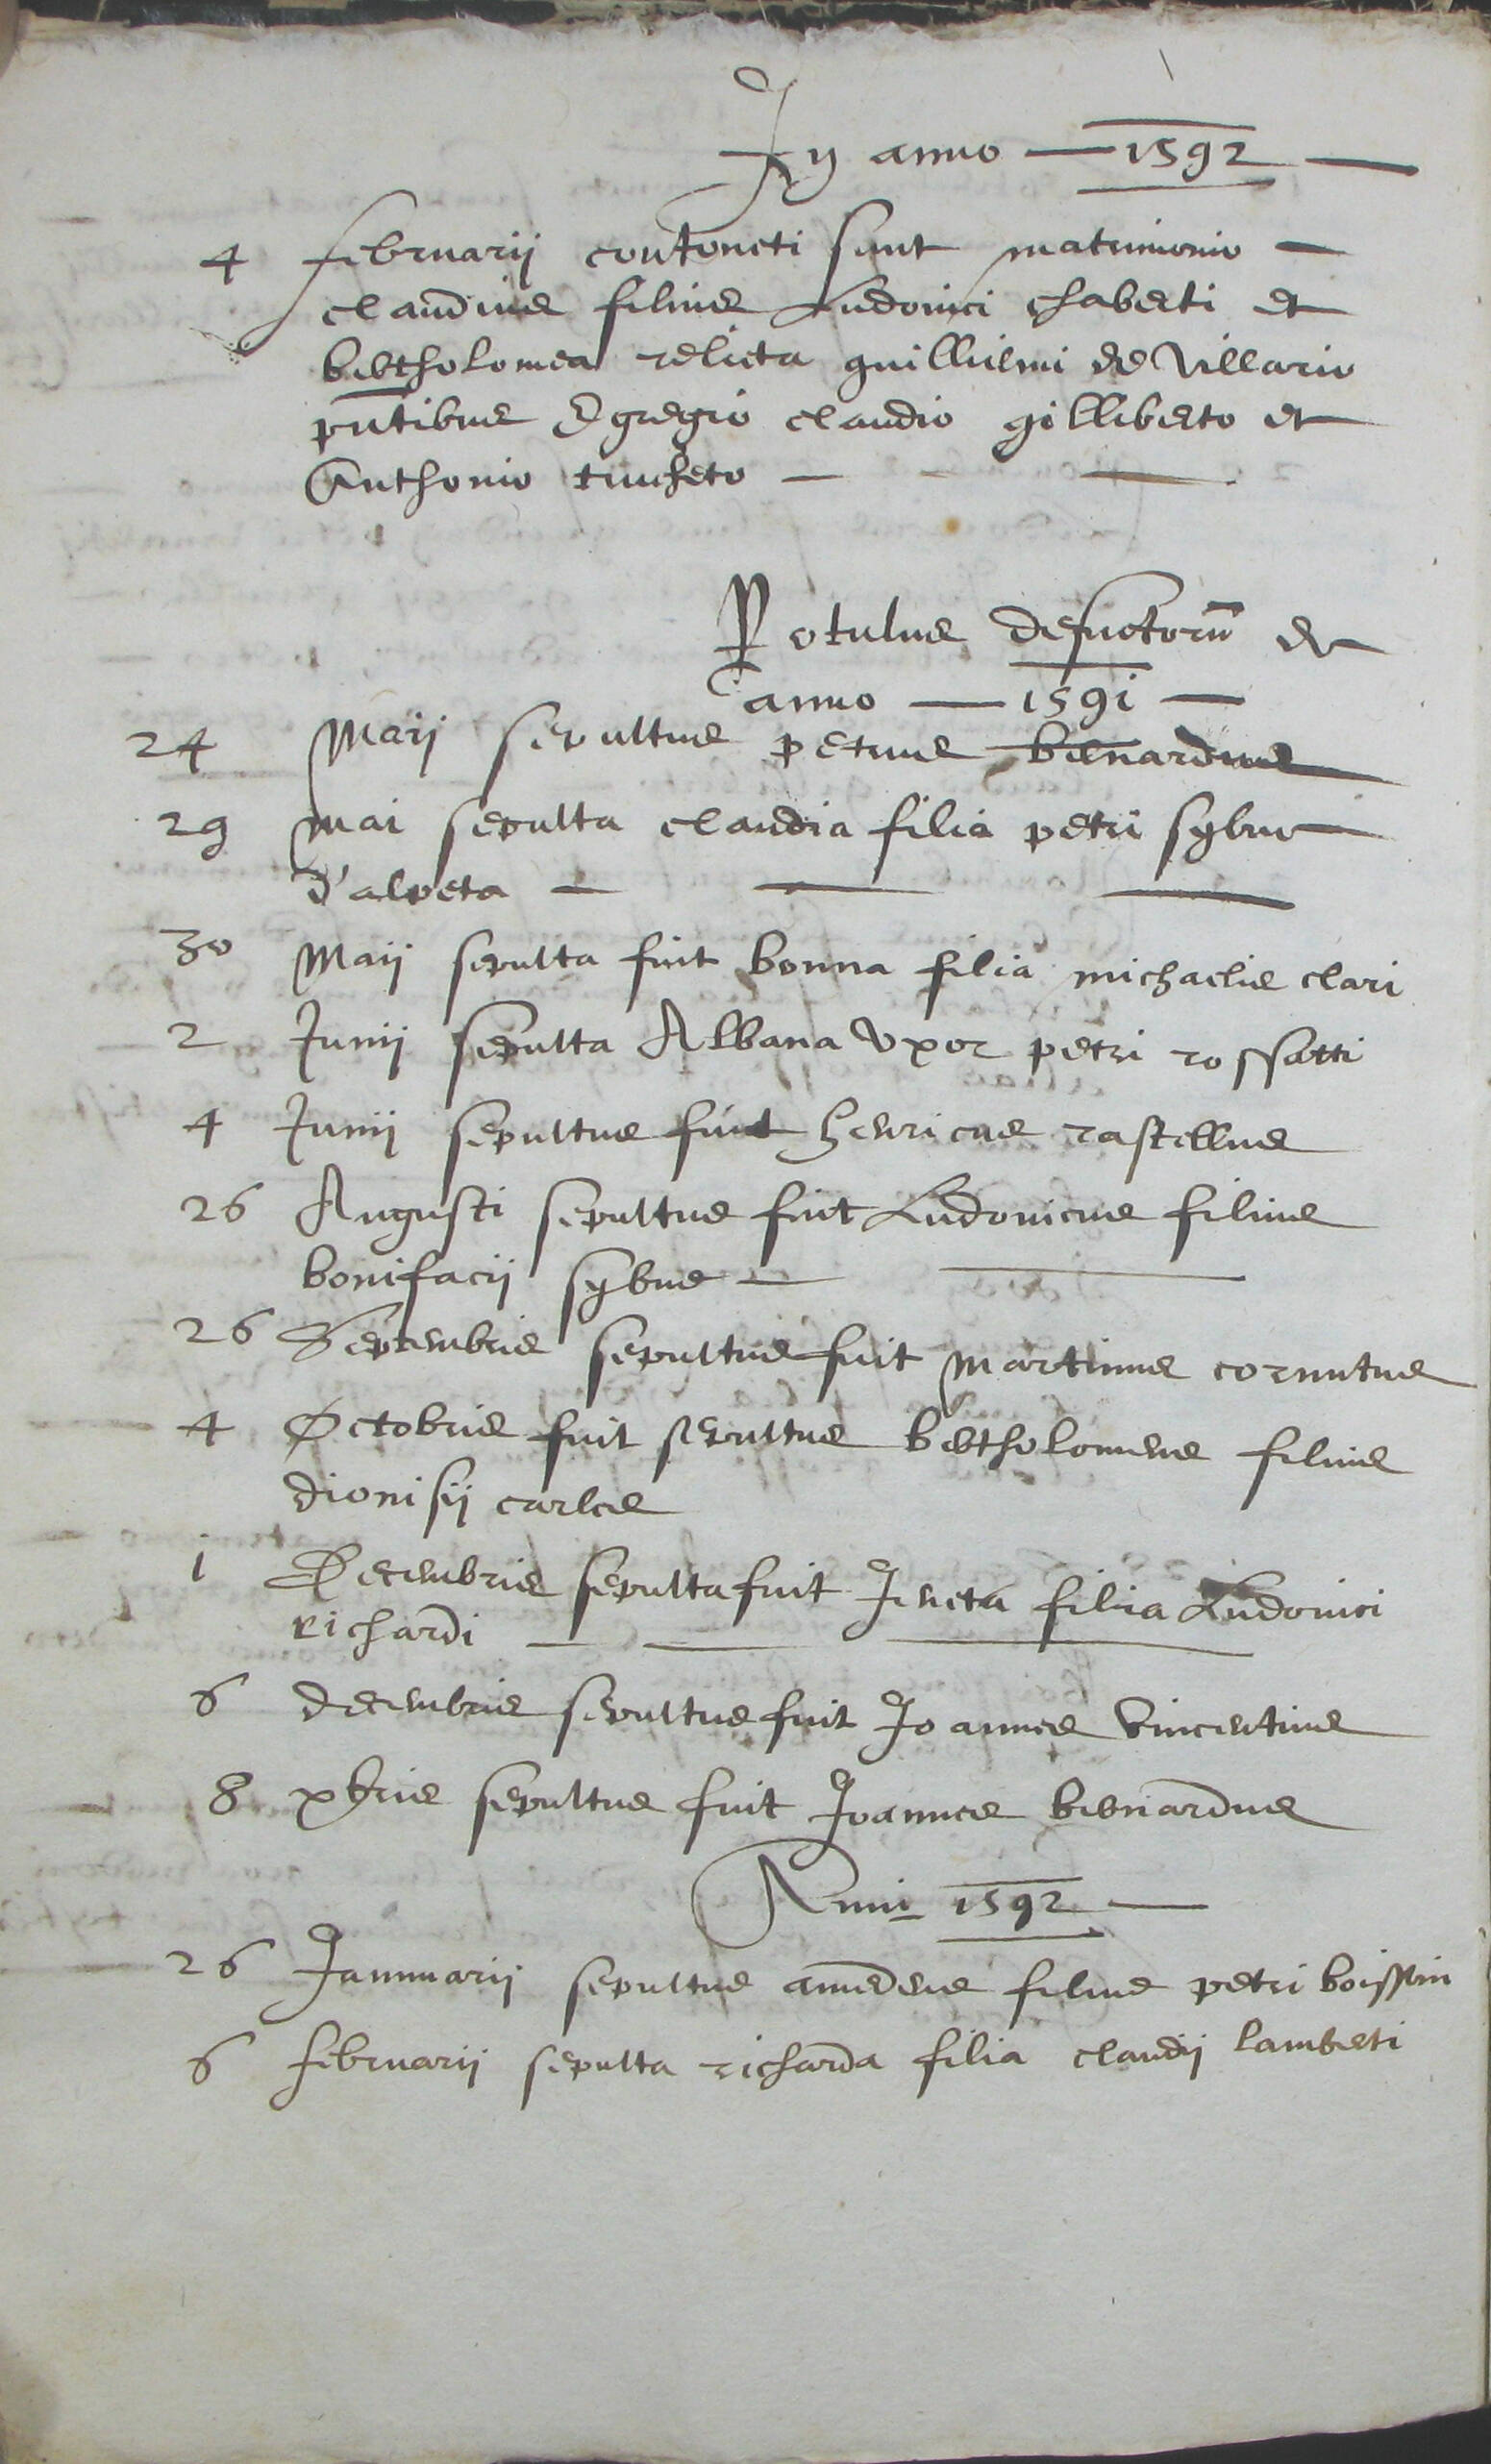 In anno — 1592 —
4 februarii contoncti sunt matrimonio —
claudius filius Ludovici chaberti et
bertholomea relicta guillielmi de Villario
pntibus Egregio claudio gilliberto et
Anthonio trucheto —
Rotulus defuctorū de
anno — 1591 —
24 Maii sepultus petrus bernardus
29 mai sepulta claudia filia petri sybue
d'alpeta —
30 Maii sepulta fuit bonna filia michaelis clari
2 Junii sepulta Albana Vxor petri rossatti
4 Junii sepultus fuit henricus rastellus
26 Augusti sepultus fuit Ludovicus filius
bonifacii sybue —
26 Septembris sepultus fuit martinus cornutus
4 Octobris fuit sepultus bertholomeus filius
dionisii carles
1 Decembris sepulta fuit Jeneta filia Ludovici
richardi —
6 decembris sepultus fuit Joannes Vincentius
8 xbris sepultus fuit Joannes bernardus
Anni 1592 —
26 Jannuarii sepultus amedeus filius petri boisson
6 februarii sepulta richarda filia claudii lamberti